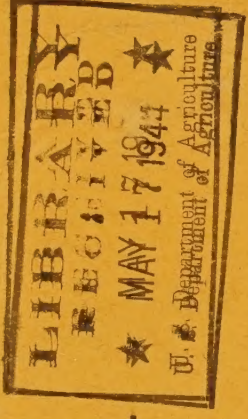 LIBRARY
RECEIVED
★ MAY 17 1944 ★
U. S. Department of Agriculture